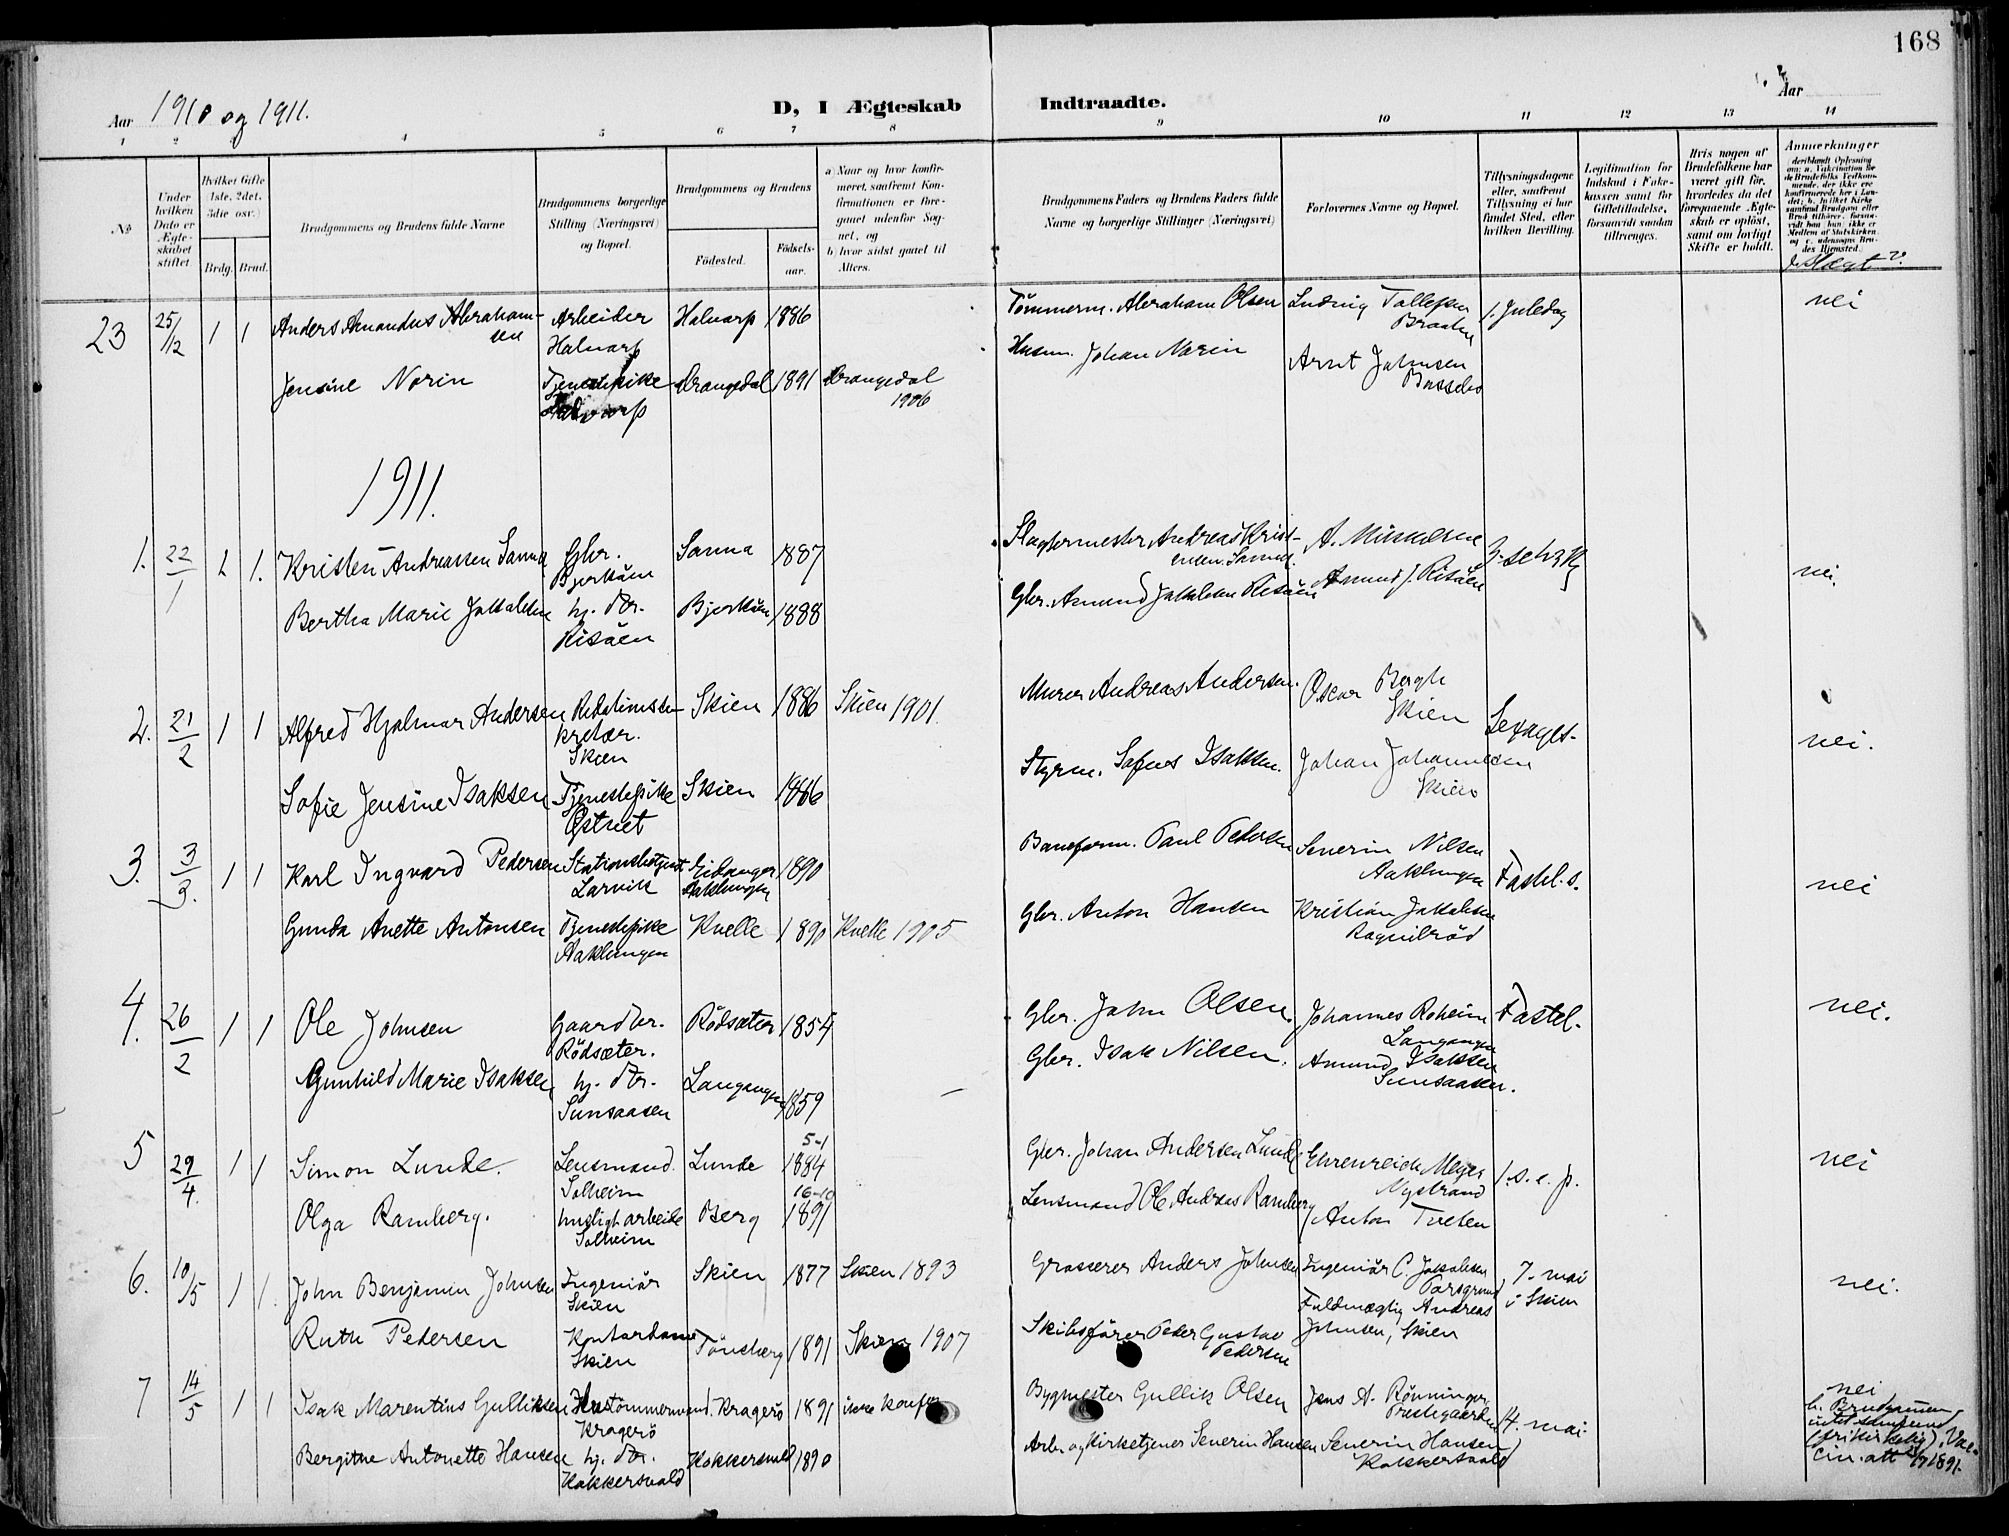 168
Aar 1910 og 1911.
D, I Ægteskab Indtraadte.
Aar
1 2 3 4 5 6 7 8 9 10 11 12 13 14
No
Under hvilken Dato er Ægteskabet stiftet.
Hvilket Gifte 1ste, 2det, 3die osv.)
Brdg. Brud.
Brudgommens og Brudens fulde Navne
Brudgommens borgerlige Stilling (Næringsvei) og Bopæl.
Brudgommens og Brudens
Födested.
Födselsaar.
a) Naar og hvor konfirmeret, saafremt Konfirmationen er foregaaet udenfor Sognet, og
b) hvor sidst gaaet til Alters.
Brudgommens Faders og Brudens Faders fulde Navne og borgerlige Stillinger (Næringsvei)
Forlovernes Navne og Bopæl.
Tillysningsdagene eller, saafremt Tillysning ei har fundet Sted, efter hvilken Bevilling.
Legitimation for Indskud i Enkekassen samt for Giftetilladelse, forsaavidt saadan tiltrænges.
Hvis nogen af Brudefolkene har været gift før, hvorledes da det foregaaende Ægteskab er oplöst, samt om lovligt Skifte er holdt.
Anmærkninger
(deriblandt Oplysning om: a. Vakcination for de Brudefolks Vedkommende, der ikke ere konfirmerede her i Landet; b. hvilket Kirkesamfund Brudgom eller Brud tilhører, forsaavidt han (hun) ikke er Medlem af Statskirken, og c. udensogns Brudes Hjemsted.
i Slægt?
23 25/12 1 1 Anders Amandus Abrahamsen Arbeider Halvarp Halvarp 1886 Tömmerm. Abraham Olsen Ludvig Tollefsen Braaten 1. Juledag nei
Jensine Norin Tjenestepike Drangedal 1891 Drangedal 1906 Husm. Johan Norin Arnt Johnsen
1911.
1. 22/1 1 1. Kristen Andreassen Sanna Gbr. Sanna 1887 Slagtermester Andreas nei.
Bertha Marie Jakobsen hj. dtr. Risåen 1888 Gbr. Amund Jakobsen Risåen Amund J. Risåen
2. 21/2 1 1 Alfred Hjalmar Andersen Skien Skien 1886 Skien 1901. Murer Andreas Andersen. Oscar Bergh Skien Sexages. nei.
Sofie Jensine Isaksen Tjenestepike Skien 1886 Styrm. Sofus Isaksen. Johan Johannesen Skien
3. 3/3. 1 1 Karl Ingvard Pedersen Larvik Eidanger Aaklungen 1890 Baneform. Paul Pedersen Severin Nilsen Aaklungen Fastel. s. nei
Gunda Anette Antonsen Tjenestepike Aaklungen Kvelle 1890 Kvelle 1905 Gbr. Anton Hansen Kristian Jakobsen
4. 26/2 1 1 Ole Johnsen Gaardbr. Rödsæter. Rödsæter 1854 Gbr. John Olsen. Johannes Roheim Langangen Fastel. nei.
Gunhild Marie Isaksen hj. dtr. Sunsaasen Langangen 1859 — Gbr. Isak Nilsen. Amund Isaksen Sunsaasen.
5 29/4. 1 1 Simon Lunde. Lensmand. Solheim Lunde 5-1 1884 Gbr. Johan Andersen Lunde Ehrenreich Meyer Nystrand 1. s. e. p. nei
Olga Ramberg. husligt arbeide Solheim Berg 16-10 1891 Lensmand Ole Andreas Ramberg Anton Tveten
6. 10/5 1 1. John Benjamin Johnsen Ingeniör Skien Skien 1877 Skien 1893 Grosserer Anders Johnsen Ingeniör C. Jakobsen Porsgrund 7. mai i Skien nei.
Ruth Pedersen Kontordame Skien Tönsberg 1891 Skien 1907 Skibsförer Peder Gustav Pedersen Fuldmægtig Andreas Johnsen, Skien
7 14/5 1 1 Isak Marentius Gulliksen Hustömmermand. Kragerö Kragerö 1891 ikke konfir Bygmester Gullik Olsen Jens A. Rönningen Prestegaarden 14. mai nei
b. Brudgommen intet samfund (frikirkelig). Vaccin. att. 1891.
Bergitne Antonette Hansen hj. dtr. Kokkersvold Kokkersvold 1890 Arb. og Kirketjener Severin Hansen Severin Hansen Kokkersvold